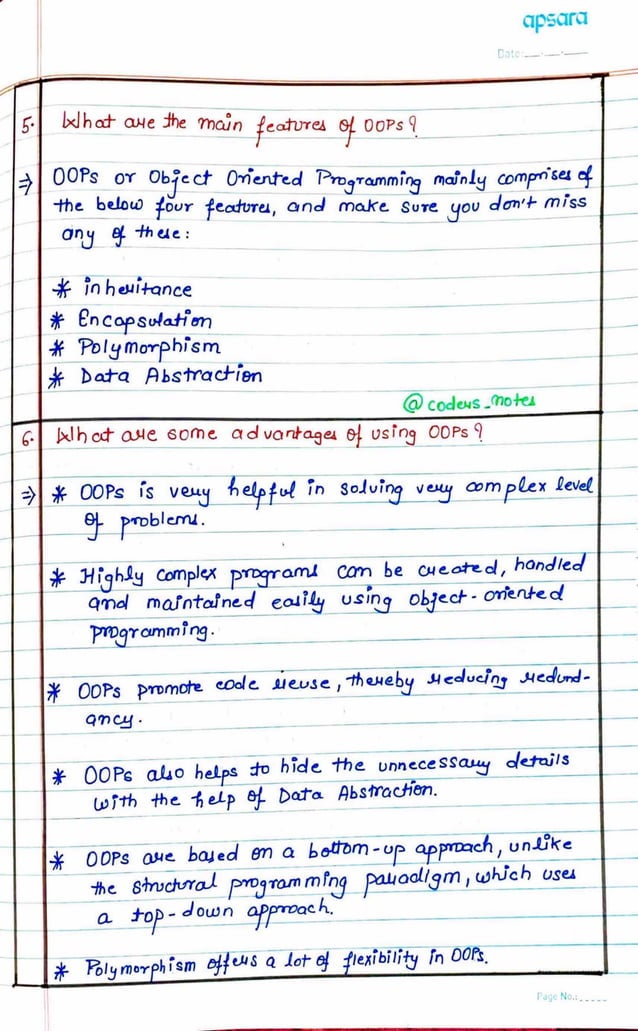 apsara
Date:
5. What are the main features of OOPs?
⇒ OOPs or Object Oriented Programming mainly comprises of
the below four features, and make sure you don't miss
any of these:
* inheritance
* Encapsulation
* Polymorphism
* Data Abstraction
@coders_notes
6. What are some advantages of using OOPs?
⇒ * OOPs is very helpful in solving very complex level
of problems.
* Highly complex programs can be created, handled
and maintained easily using object-oriented
programming.
* OOPs promote code reuse, thereby reducing redund-
ancy.
* OOPs also helps to hide the unnecessary details
with the help of Data Abstraction.
* OOPs are based on a bottom-up approach, unlike
the structural programming paradigm, which uses
a top-down approach.
* Polymorphism offers a lot of flexibility in OOPs.
Page No.: